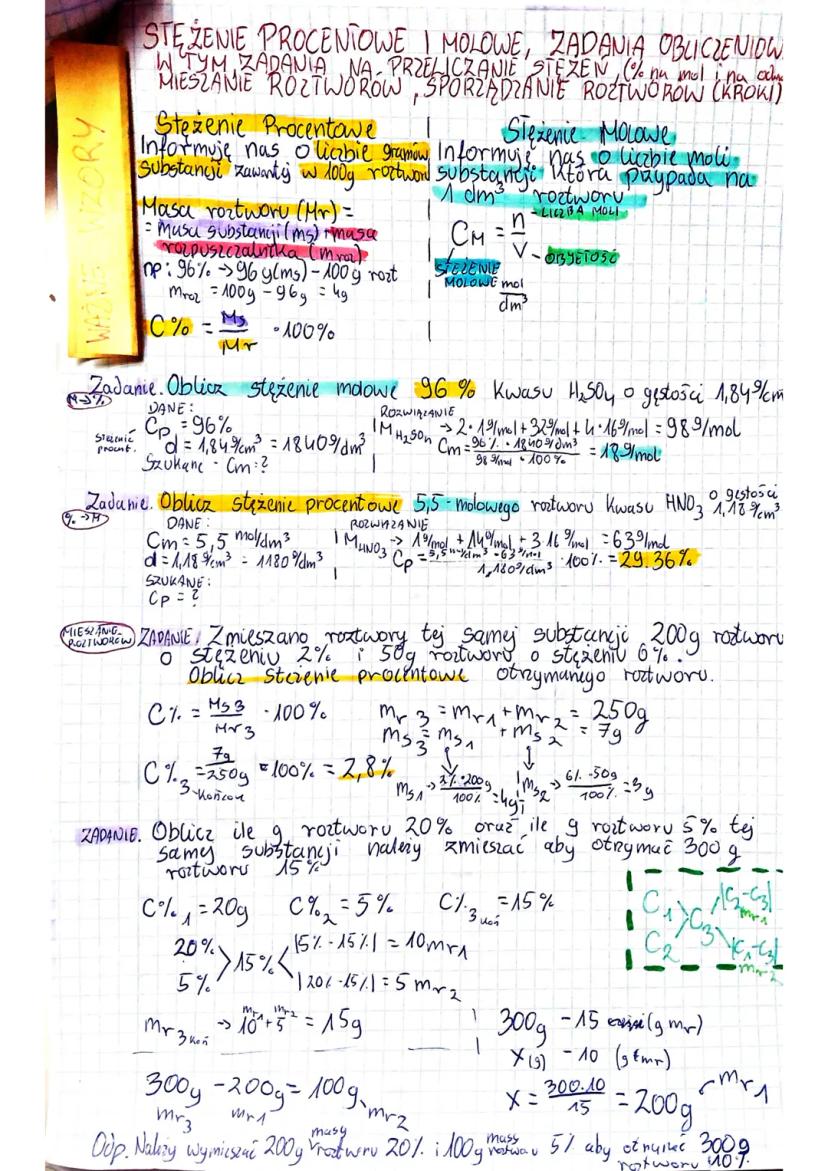 STĘŻENIE PROCENTOWE I MOLOWE, ZADANIA OBLICZENIOW
W TYM ZADANIA NA PRZELICZANIE STĘŻEŃ, (% na mol i na odw
MIESZANIE ROZTWORÓW, SPORZĄDZANIE ROZTWORÓW (KROKI)
WAŻNE WZORY
Stężenie Procentowe
Informuję nas o liczbie gramów
substancji zawartej w 100g roztwor
Masa roztworu (Mr) =
= Masa substancji (ms) + masa
rozpuszczalnika (m roz)
np: 96% → 96 g (ms) - 100 g rozt
mroz = 100g - 96g = 4g
C% = Ms/Mr · 100%
Stężenie Molowe
Informuję nas o liczbie moli
substancji która przypada na
1 dm³ roztworu
CM = n/V
- LICZBA MOLI
- OBJĘTOŚĆ
STĘŻENIE MOLOWE
mol/dm³
Zadanie. Oblicz stężenie molowe 96 % Kwasu H₂SO₄ o gęstości 1,84 g/cm
M→%
DANE:
Cp = 96%
stężenie procent.
d = 1,84 g/cm³ = 1840 g/dm³
Szukane - Cm = ?
ROZWIĄZANIE
M H₂SO₄ → 2 · 1 g/mol + 32 g/mol + 4 · 16 g/mol = 98 g/mol
Cm = 96% · 1840 g/dm³ / 98 g/mol · 100% = 18 g/mol
Zadanie. Oblicz stężenie procentowe 5,5-molowego roztworu Kwasu HNO₃ o gęstości 1,18 g/cm³
%→M
DANE:
Cm = 5,5 mol/dm³
d = 1,18 g/cm³ = 1180 g/dm³
SZUKANE:
Cp = ?
ROZWIĄZANIE
M HNO₃ → 1 g/mol + 14 g/mol + 3 · 16 g/mol = 63 g/mol
Cp = 5,5 mol/dm³ · 63 g/mol / 1,180 g/dm³ · 100% = 29.36%
MIESZANIE ROZTWORÓW
ZADANIE. Zmieszano roztwory tej samej substancji 200g roztworu
o stężeniu 2% i 50g roztworu o stężeniu 6%.
Oblicz stężenie procentowe otrzymanego roztworu.
C% = Ms3/Mr3 · 100%
mr3 = mr1 + mr2 = 250g
ms3 = ms1 + ms2 = 7g
C%3 końcowe = 7g/250g · 100% = 2,8%
ms1 → 2% · 200g / 100% = 4g
ms2 → 6% · 50g / 100% = 3g
ZADANIE. Oblicz ile g roztworu 20% oraz ile g roztworu 5% tej
samej substancji należy zmieszać aby otrzymać 300 g
roztworu 15%
C%1 = 20g C%2 = 5% C%3 koń = 15%
20%
5%
> 15% <
|5% - 15%| = 10 mr1
|20% - 15%| = 5 mr2
C1
C2
> C3
|C2-C3| mr1
|C1-C3| mr2
mr3 koń → 10 mr1 + 5 mr2 = 15g
300g - 15 (g mr)
X (g) - 10 (g mr)
X = 300 · 10 / 15 = 200g mr1
300g - 200g = 100g
mr3 mr1 mr2
Odp. Należy wymieszać 200g masy roztworu 20% i 100g masy roztworu 5% aby otrzymać 300g
roztworu 10%.